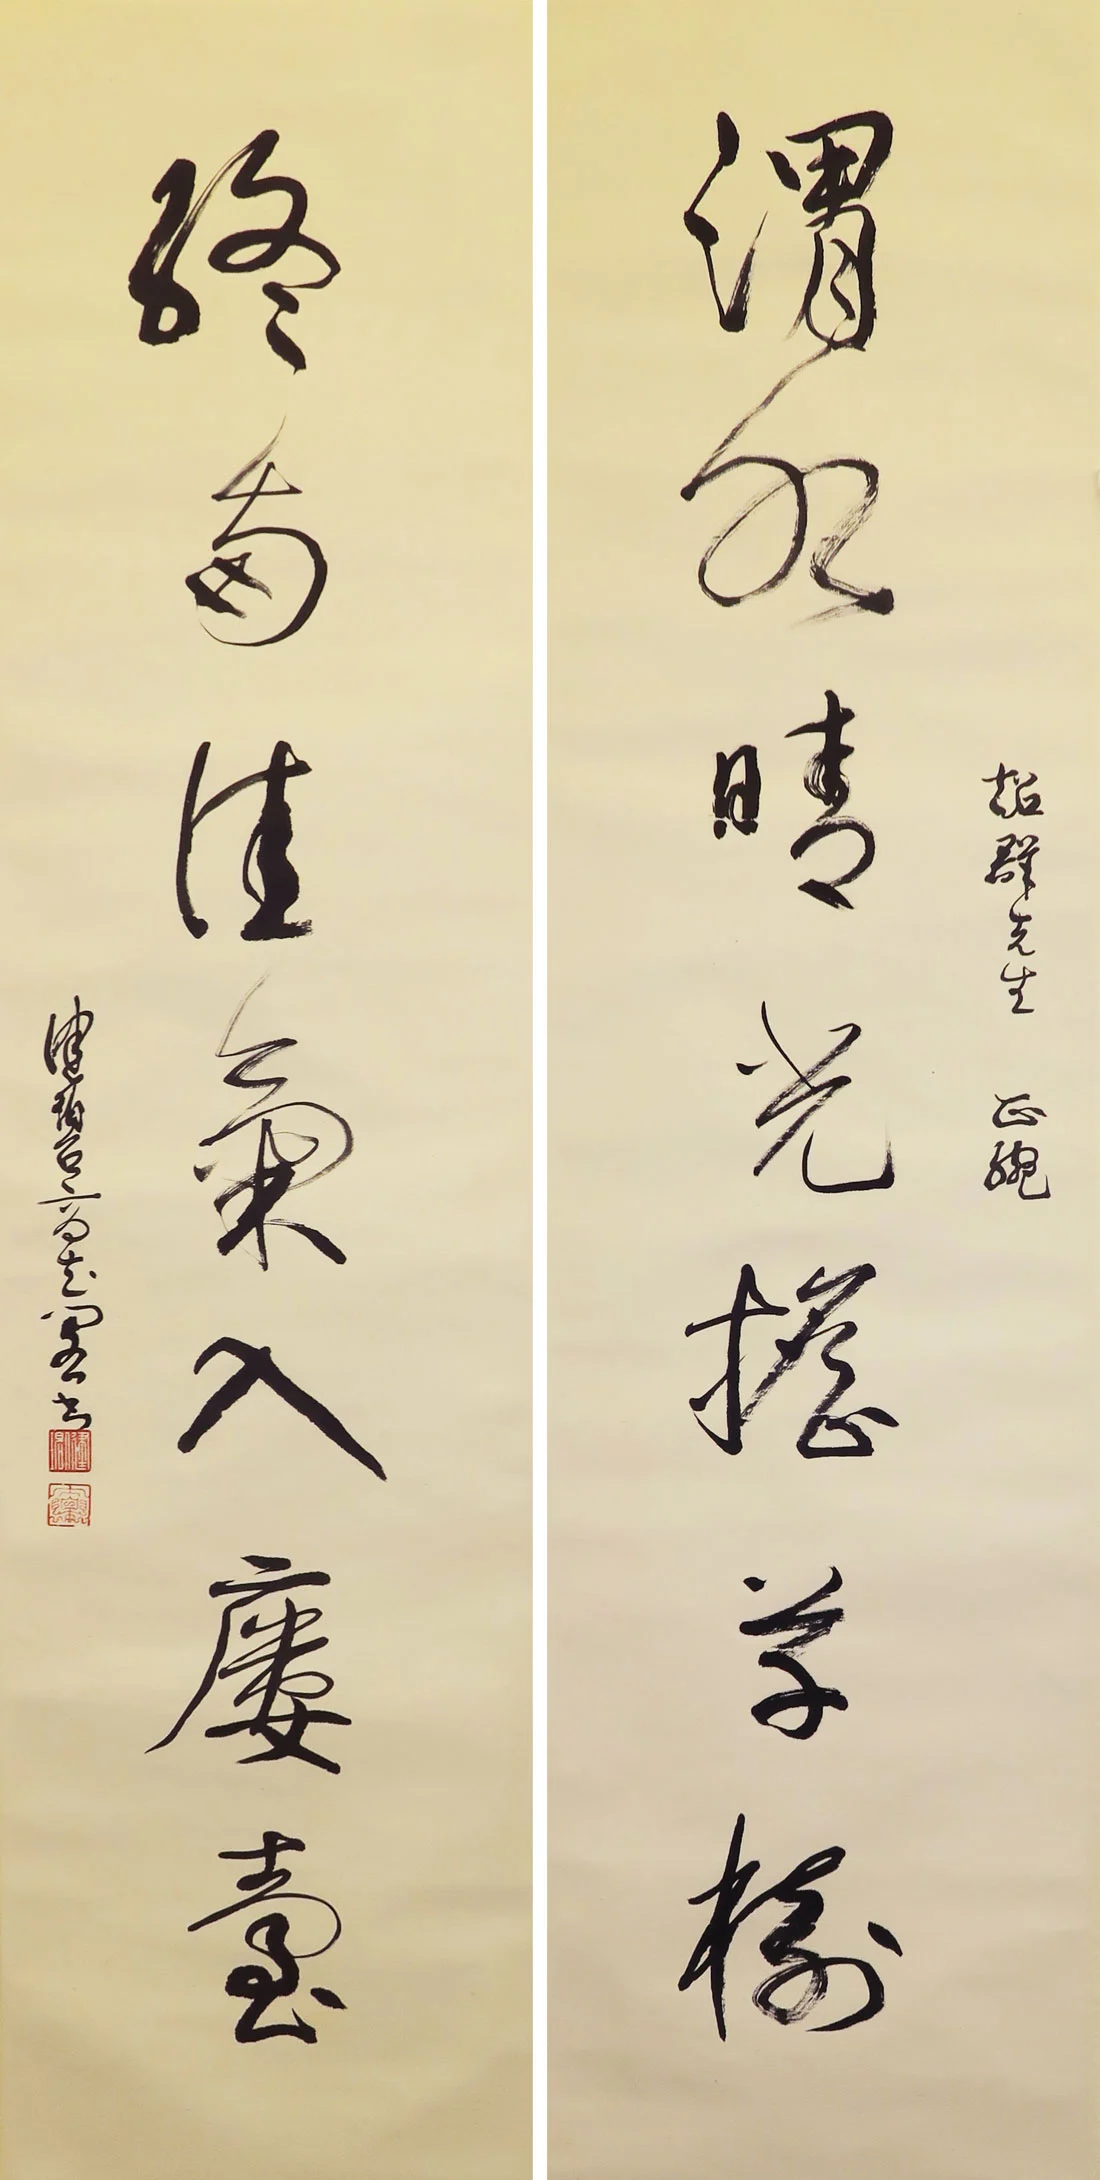 超群先生 正腕
渭水晴光搖草樹
終南佳氣入樓臺